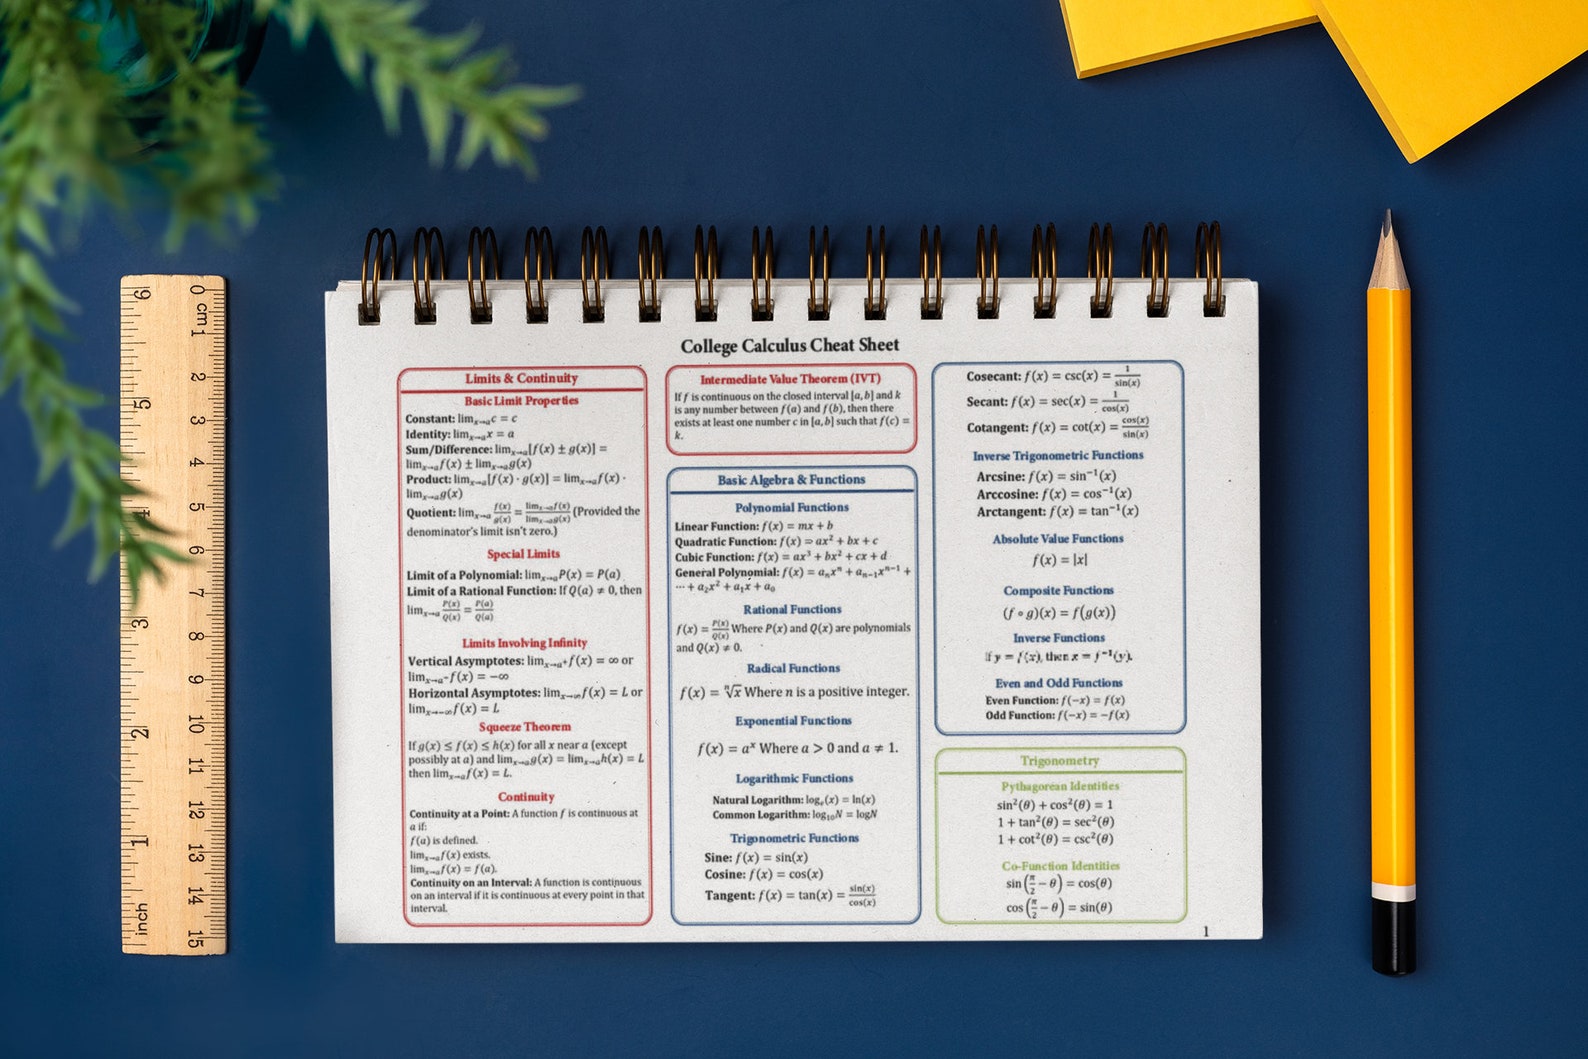 College Calculus Cheat Sheet
Limits & Continuity
Basic Limit Properties
Constant: limₓ→ₐc = c
Identity: limₓ→ₐx = a
Sum/Difference: limₓ→ₐ[f(x) ± g(x)] =
limₓ→ₐf(x) ± limₓ→ₐg(x)
Product: limₓ→ₐ[f(x) · g(x)] = limₓ→ₐf(x) ·
limₓ→ₐg(x)
Quotient: limₓ→ₐ f(x)/g(x) = limₓ→ₐf(x)/limₓ→ₐg(x) (Provided the
denominator's limit isn't zero.)
Special Limits
Limit of a Polynomial: limₓ→ₐP(x) = P(a)
Limit of a Rational Function: If Q(a) ≠ 0, then
limₓ→ₐ P(x)/Q(x) = P(a)/Q(a)
Limits Involving Infinity
Vertical Asymptotes: limₓ→ₐ⁺f(x) = ∞ or
limₓ→ₐ⁻f(x) = −∞
Horizontal Asymptotes: limₓ→∞f(x) = L or
limₓ→−∞f(x) = L
Squeeze Theorem
If g(x) ≤ f(x) ≤ h(x) for all x near a (except
possibly at a) and limₓ→ₐg(x) = limₓ→ₐh(x) = L
then limₓ→ₐf(x) = L.
Continuity
Continuity at a Point: A function f is continuous at
a if:
f(a) is defined.
limₓ→ₐf(x) exists.
limₓ→ₐf(x) = f(a).
Continuity on an Interval: A function is continuous
on an interval if it is continuous at every point in that
interval.
Intermediate Value Theorem (IVT)
If f is continuous on the closed interval [a, b] and k
is any number between f(a) and f(b), then there
exists at least one number c in [a, b] such that f(c) =
k.
Basic Algebra & Functions
Polynomial Functions
Linear Function: f(x) = mx + b
Quadratic Function: f(x) = ax² + bx + c
Cubic Function: f(x) = ax³ + bx² + cx + d
General Polynomial: f(x) = aₙxⁿ + aₙ₋₁xⁿ⁻¹ +
⋯ + a₂x² + a₁x + a₀
Rational Functions
f(x) = P(x)/Q(x) Where P(x) and Q(x) are polynomials
and Q(x) ≠ 0.
Radical Functions
f(x) = ⁿ√x Where n is a positive integer.
Exponential Functions
f(x) = aˣ Where a > 0 and a ≠ 1.
Logarithmic Functions
Natural Logarithm: logₑ(x) = ln(x)
Common Logarithm: log₁₀N = logN
Trigonometric Functions
Sine: f(x) = sin(x)
Cosine: f(x) = cos(x)
Tangent: f(x) = tan(x) = sin(x)/cos(x)
Cosecant: f(x) = csc(x) = 1/sin(x)
Secant: f(x) = sec(x) = 1/cos(x)
Cotangent: f(x) = cot(x) = cos(x)/sin(x)
Inverse Trigonometric Functions
Arcsine: f(x) = sin⁻¹(x)
Arccosine: f(x) = cos⁻¹(x)
Arctangent: f(x) = tan⁻¹(x)
Absolute Value Functions
f(x) = |x|
Composite Functions
(f ∘ g)(x) = f(g(x))
Inverse Functions
If y = f(x), then x = f⁻¹(y).
Even and Odd Functions
Even Function: f(−x) = f(x)
Odd Function: f(−x) = −f(x)
Trigonometry
Pythagorean Identities
sin²(θ) + cos²(θ) = 1
1 + tan²(θ) = sec²(θ)
1 + cot²(θ) = csc²(θ)
Co-Function Identities
sin(π/2 − θ) = cos(θ)
cos(π/2 − θ) = sin(θ)
1
6 5 4 3 2 1 inch
0 cm 1 2 3 4 5 6 7 8 9 10 11 12 13 14 15